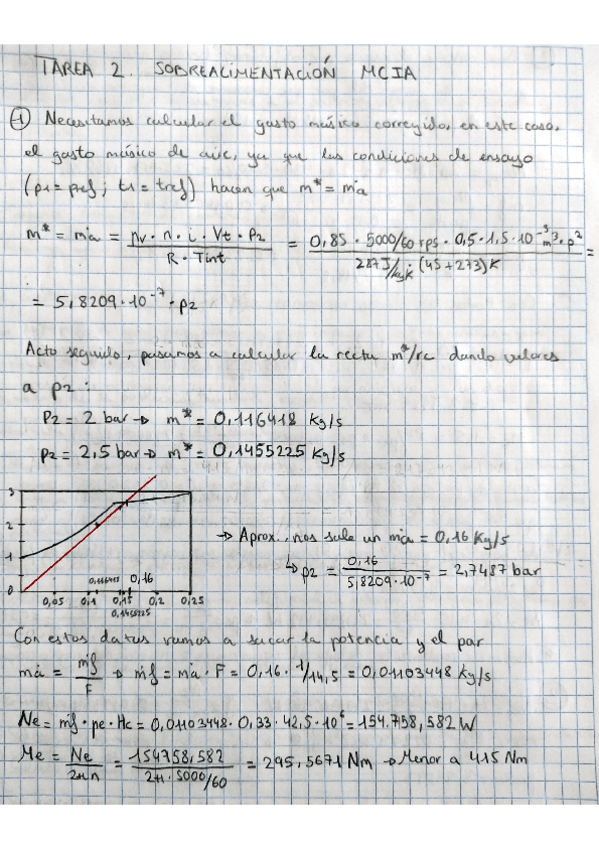 TAREA 2. SOBREALIMENTACIÓN MCIA
① Necesitamos calcular el gasto másico corregido, en este caso,
el gasto másico de aire, ya que las condiciones de ensayo
(p1 = pref ; t1 = tref) hacen que m* = ṁa
m* = ṁa = ηv · n · i · Vt · p2 / R · Tint = 0,85 · 5000/60 rps · 0,5 · 1,5 · 10⁻³ m³ · p2 / 287 J/kgK · (45 + 273) K =
= 5,8209 · 10⁻⁷ · p2
Acto seguido, pasamos a calcular la recta m*/rc dando valores
a p2 :
P2 = 2 bar → m* = 0,116418 Kg/s
p2 = 2,5 bar → m* = 0,1455225 Kg/s
3
2
1
0
0,116418 0,16
0,05 0,1 0,15 0,2 0,25
0,1455225
→ Aprox., nos sale un ṁa = 0,16 Kg/s
↳ p2 = 0,16 / 5,8209 · 10⁻⁷ = 2,7487 bar
Con estos datos vamos a sacar la potencia y el par
ṁa = ṁf / F → ṁf = ṁa · F = 0,16 · 1/14,5 = 0,01103448 Kg/s
Ne = ṁf · ρe · Hc = 0,01103448 · 0,33 · 42,5 · 10⁶ = 154.758,582 W
Me = Ne / 2πn = 154758,582 / 2π · 5000/60 = 295,5671 Nm → Menor a 415 Nm